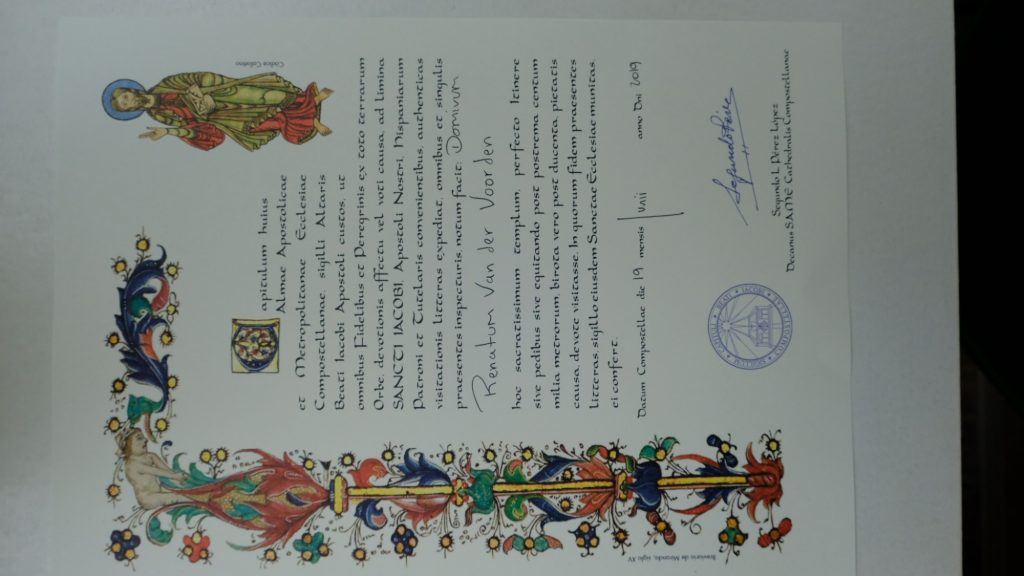 Codice Calixtino
Capitulum huius
Almae Apostolicae
et Metropolitanae Ecclesiae
Compostellanae, sigilli Altaris
Beati Iacobi Apostoli custos, ut
omnibus Fidelibus et Peregrinis ex toto terrarum
Orbe, devotionis affectu vel voti causa, ad limina
SANCTI IACOBI, Apostoli Nostri, Hispaniarum
Patroni et Tutelaris convenientibus, authenticas
visitationis litteras expediat, omnibus et singulis
praesentes inspecturis, notum facit: Dominum
Renatum Van der Voorden
hoc sacratissimum templum, perfecto Itinere
sive pedibus sive equitando post postrema centum
milia metrorum, birota vero post ducenta, pietatis
causa, devote visitasse. In quorum fidem praesentes
litteras, sigillo eiusdem Sanctae Ecclesiae munitas,
ei confert.
Datum Compostellae die 19 mensis Iunii anno Dni 2019
Segundo L. Pérez López
Decanus S.A.M.E. Cathedralis Compostellanae
Breviario de Miranda, siglo XV